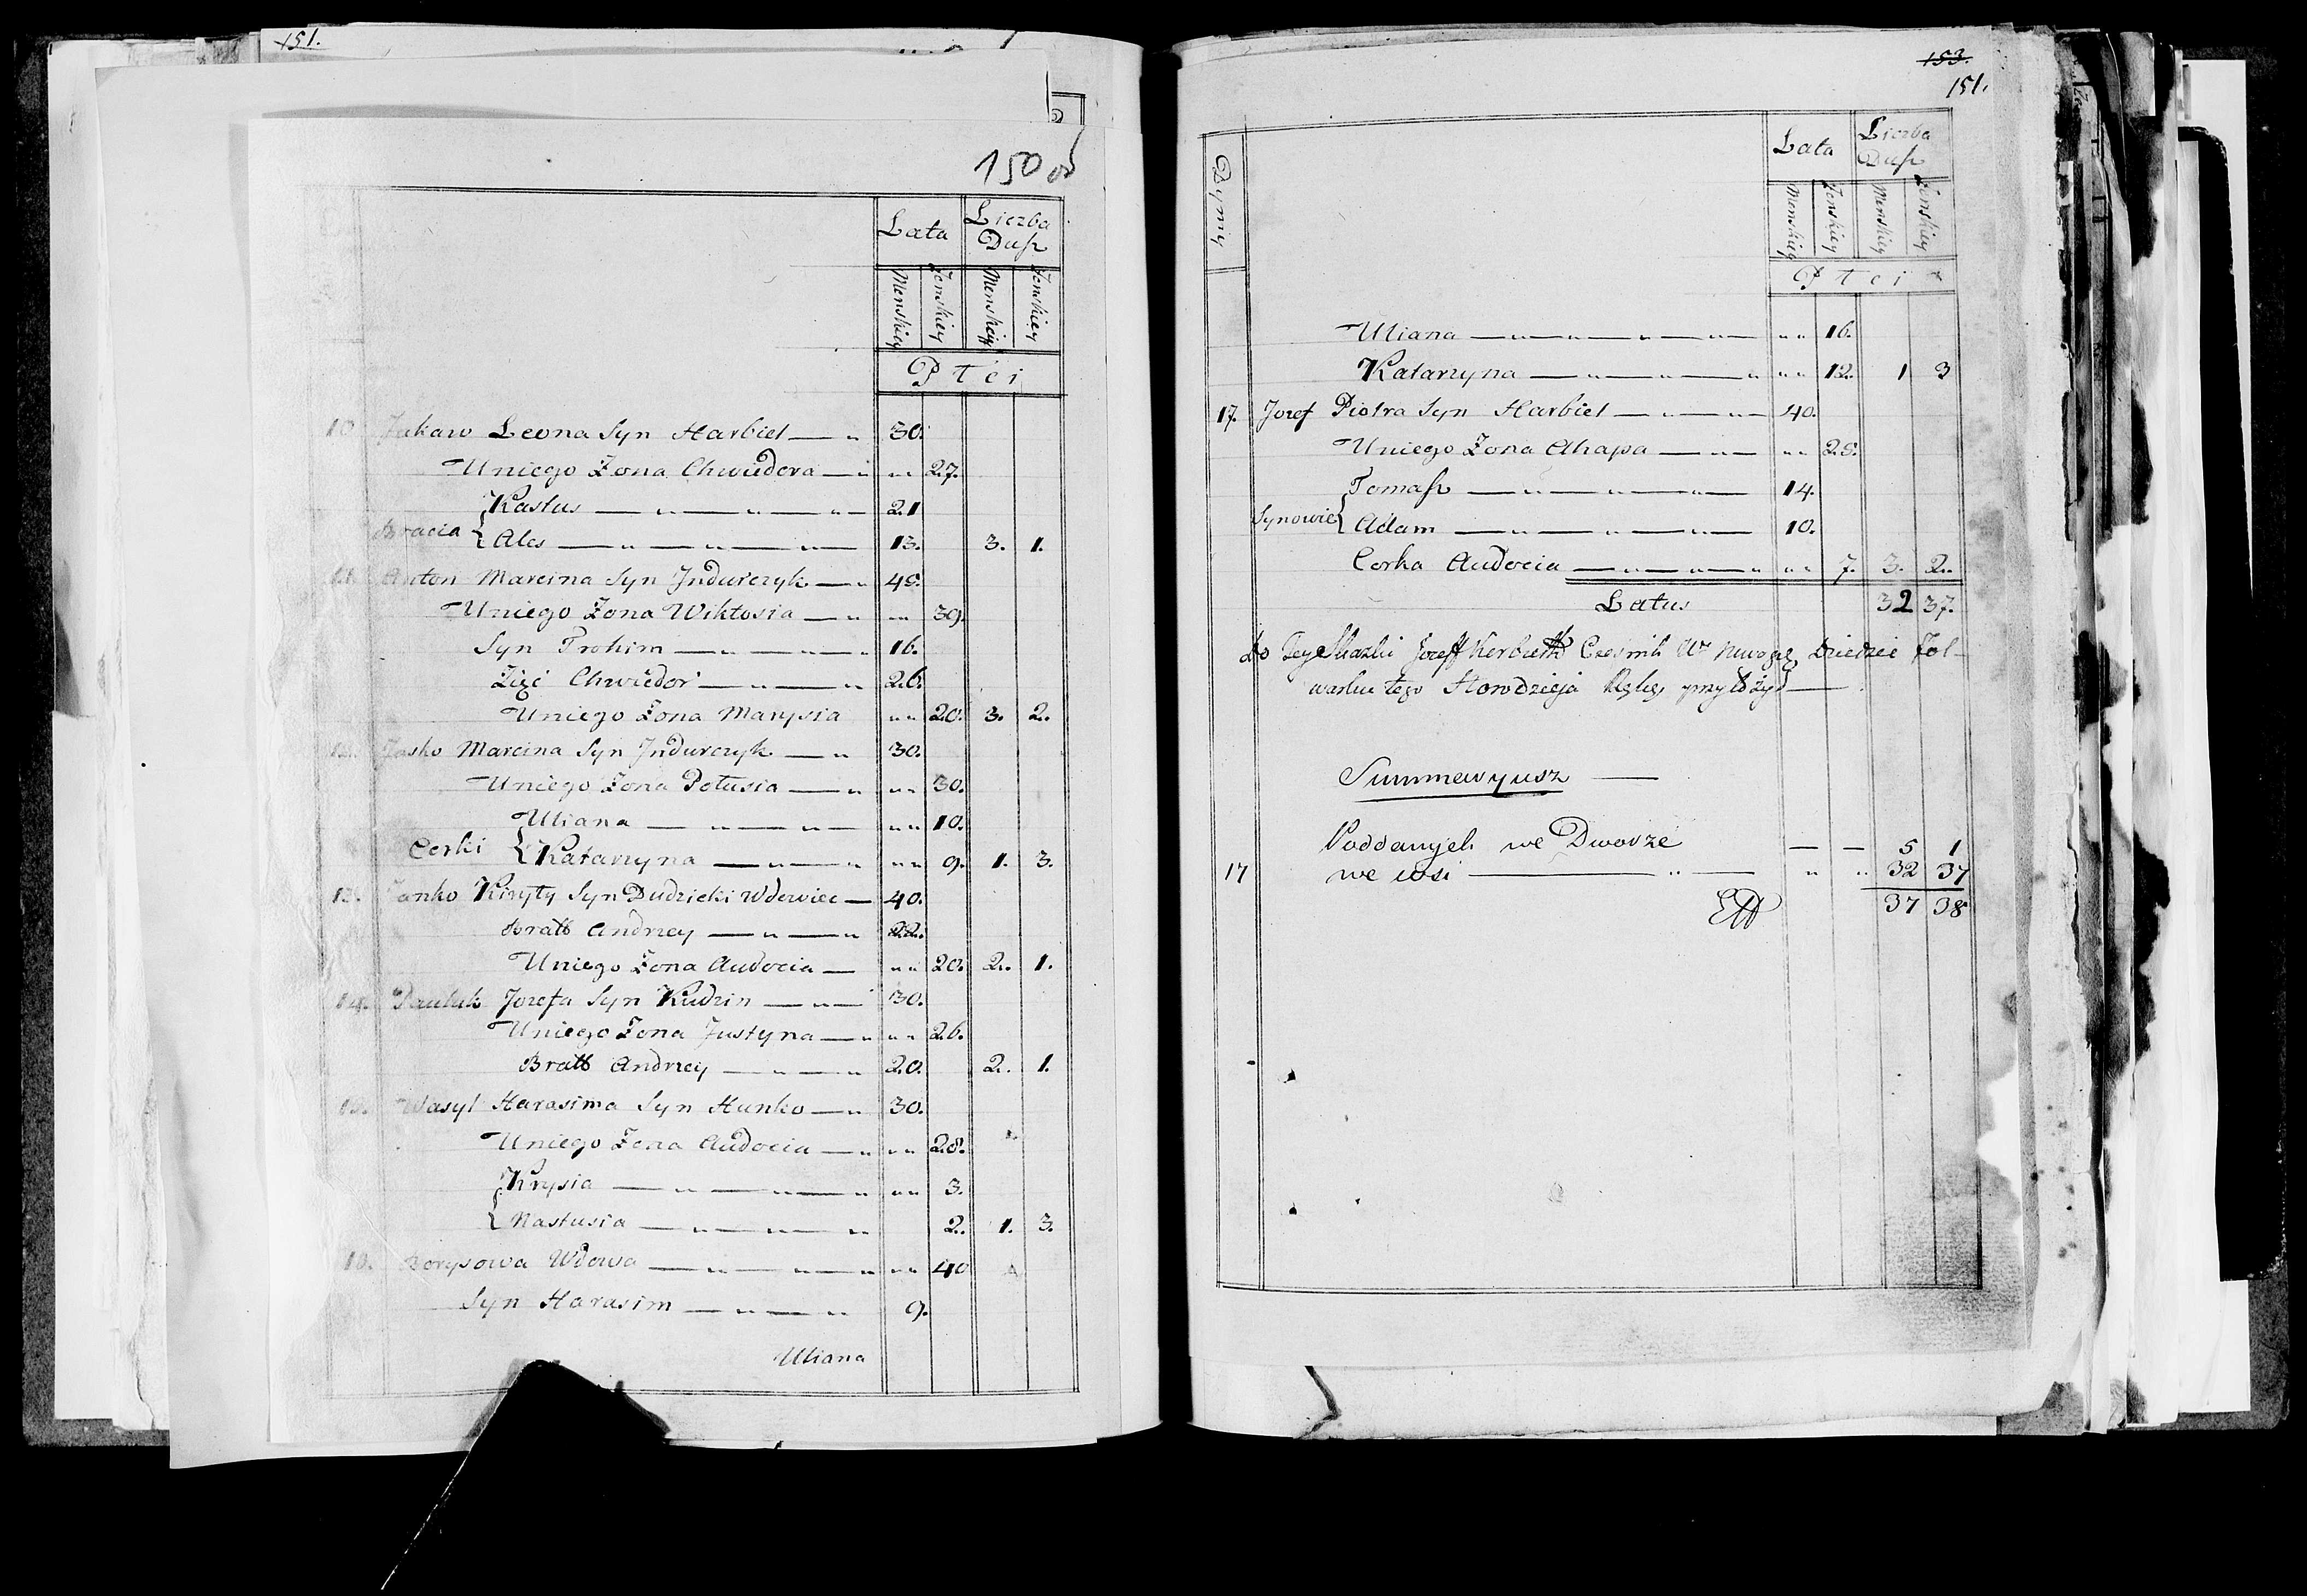 151.
150 ob
Lata Liczba Dusz
Menskiey Zenskiey Menskiey Zenskiey
Płci
10 Jukaw Leona Syn Harbiel — „ 30.
Uniego Zona Chwiedora — „ „ 27.
Kastus — „ — „ — „ — 21
Bracia { Ales — „ — „ — „ — 13. 3. 1.
11. Anton Marcina Syn Jndurczyk — „ 49.
Uniego Zona Wiktosia — „ „ 39.
Syn Trohim — „ — „ 16.
Zięć Chwiedor — „ — „ 26.
Uniego Zona Marysia „ „ 20. 3. 2.
12. Jasko Marcina Syn Jndurczyk — „ 30.
Uniego Zona Polusia — „ „ „ 30.
Uliana — „ — „ — „ „ 10.
Corki { Katarzyna — „ — „ „ „ 9. 1. 3.
13. Janko Kiryły Syn Dudzicki Wdowiec — 40.
Bratt Andrzey — „ — „ 22.
Uniego Zona Audocia — „ „ 20. 2. 1.
14. Pauluk Jozefa Syn Kudzin — „ — 30.
Uniego Zona Justyna — „ „ „ 26.
Bratt Andrzey — „ — „ 20. 2. 1.
15. Wasyl Harasima Syn Hunko — „ 30.
Uniego Zona Audocia — „ „ „ 28.
{ Krysia — „ — „ — „ „ „ 3.
{ Nastusia — „ — „ — „ 2. 1. 3.
16. Borysowa Wdowa — „ — „ — „ „ „ 40
Syn Harasim — „ — „ — „ 9.
Uliana
153.
151.
Dymy
Lata Liczba Dusz
Menskiey Zenskiey Menskiey Zenskiey
Płci
Uliana — „ — „ — „ — „ „ 16.
Katarzyna — „ — „ — „ „ „ 12. 1 3
17. Jozef Piotra Syn Harbiel — „ — „ — 40.
Uniego Zona Ahapa — „ — „ „ 28.
Tomasz — „ — „ — „ — 14.
Synowie { Adam — „ — „ — „ — 10.
Corka Audocia — „ — „ — „ „ „ 7. 3. 2.
Latus 32 37.
do Tey Skazki Jozeff Kerbett Czesnik Wo Nowogr Dziedzic Fol-
warku tego Howdzieja Rękę przyłożył —
Summaryusz —
Poddanych we Dworze — — 5 1
17 we wsi — „ — „ „ 32 37
37 38